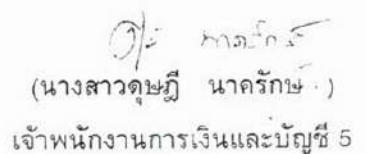 (นางสาวดุษฎี นาครักษ์)
เจ้าพนักงานการเงินและบัญชี 5